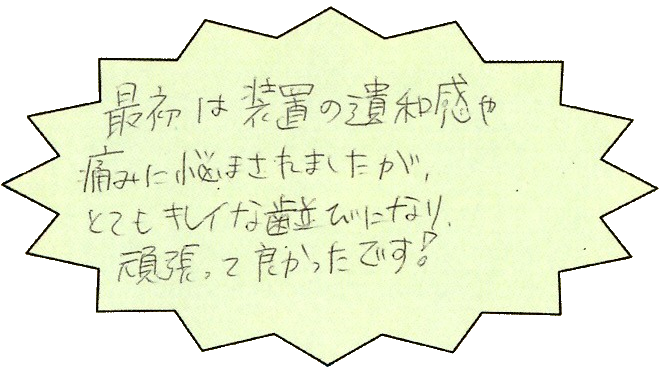 最初は装置の遺和感や
痛みに悩まされましたが、
とてもキレイな歯並びになり、
頑張って良かったです!